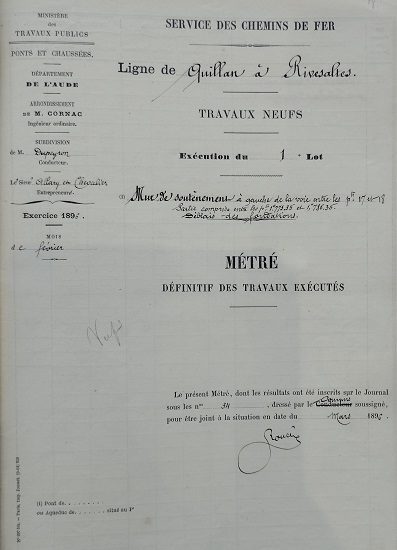 MINISTÈRE
des
TRAVAUX PUBLICS
PONTS ET CHAUSSÉES.
DÉPARTEMENT
DE L'AUDE
ARRONDISSEMENT
DE M. CORNAC
Ingénieur ordinaire.
SUBDIVISION
de M. Dupeyron
Conducteur.
et Chevalier
Entrepreneurs.
Exercice 189
MOIS
de février
SERVICE DES CHEMINS DE FER
Ligne de Quillan à Rivesaltes.
TRAVAUX NEUFS
Exécution du 1er Lot
(1) Mur de soutènement à gauche de la voie entre les pts 17 et 18
Partie comprise entre les
Déblais des fondations.
MÉTRÉ
DÉFINITIF DES TRAVAUX EXÉCUTÉS
Le présent Métré, dont les résultats ont été inscrits sur le Journal
sous les nos 34, dressé par le Conducteur soussigné,
pour être joint à la situation en date du Mars 189
(1) Pont de
ou Aqueduc de situé au P